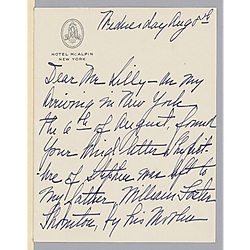 Wednesday Aug 8th
HOTEL McALPIN
NEW YORK
Dear Mr. Lilly - on my
arriving in New York
the 6th of August, found
your kind letter
of Stephen was left to
my father, William Foster
Thornton, by his Mother